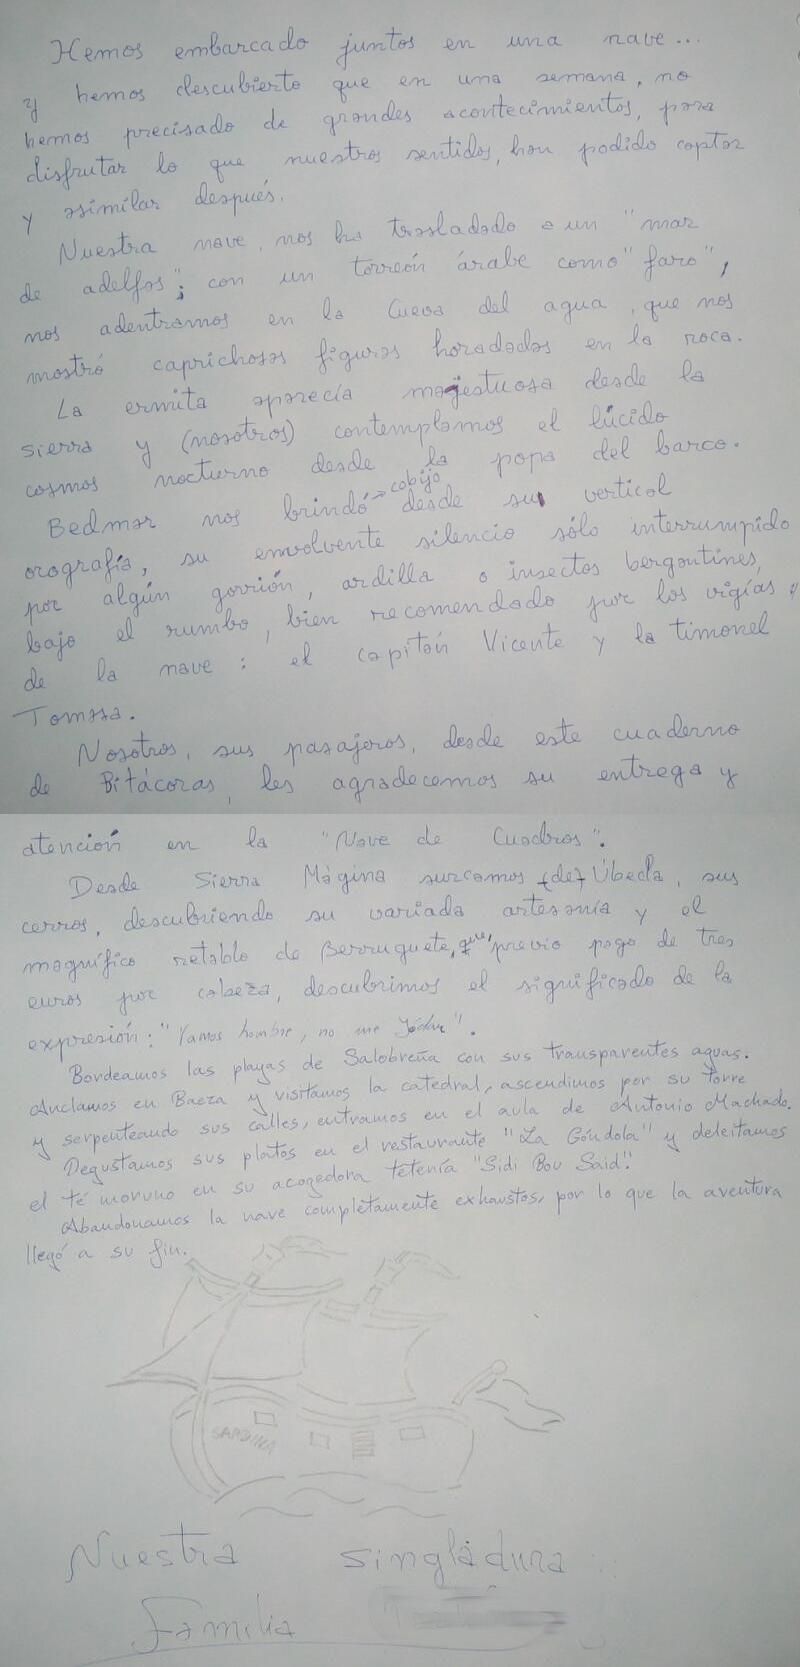 Hemos embarcado juntos en una nave...
y hemos descubierto que en una semana, no
hemos precisado de grandes acontecimientos, para
disfrutar lo que nuestros sentidos, han podido captar
y asimilar después.
Nuestra nave, nos ha trasladado a un "mar
de adelfas"; con un torreón árabe como "faro",
nos adentramos en la Cueva del agua, que nos
mostró caprichosas figuras horadadas en la roca.
La ermita aparecía magestuosa desde la
sierra y (nosotros) contemplamos el lúcido
cosmos nocturno desde la popa del barco.
Bedmar nos brindó cobijo desde su vertical
orografía, su envolvente silencio sólo interrumpido
por algún gorrión, ardilla o insectos bergantines,
bajo el rumbo, bien recomendado por los vigías
de la nave: el capitán Vicente y la timonel
Tomasa.
Nosotros, sus pasajeros, desde este cuaderno
de Bitácoras, les agradecemos su entrega y
atención en la "Nave de Cuadros".
Desde Sierra Mágina surcamos (de) Úbeda, sus
cerros, descubriendo su variada artesanía y el
magnífico retablo de Berruguete, que, previo pago de tres
euros por cabeza, descubrimos el significado de la
expresión: "Vamos hombre, no me Jódar".
Bordeamos las playas de Salobreña con sus transparentes aguas.
Anclamos en Baeza y visitamos la catedral, ascendimos por su torre
y serpenteando sus calles, entramos en el aula de Antonio Machado.
Degustamos sus platos en el restaurante "La Góndola" y deleitamos
el té moruno en su acogedora tetería "Sidi Bou Said".
Abandonamos la nave completamente exhaustos, por lo que la aventura
llegó a su fin.
SARDINA
Nuestra singladura
Familia